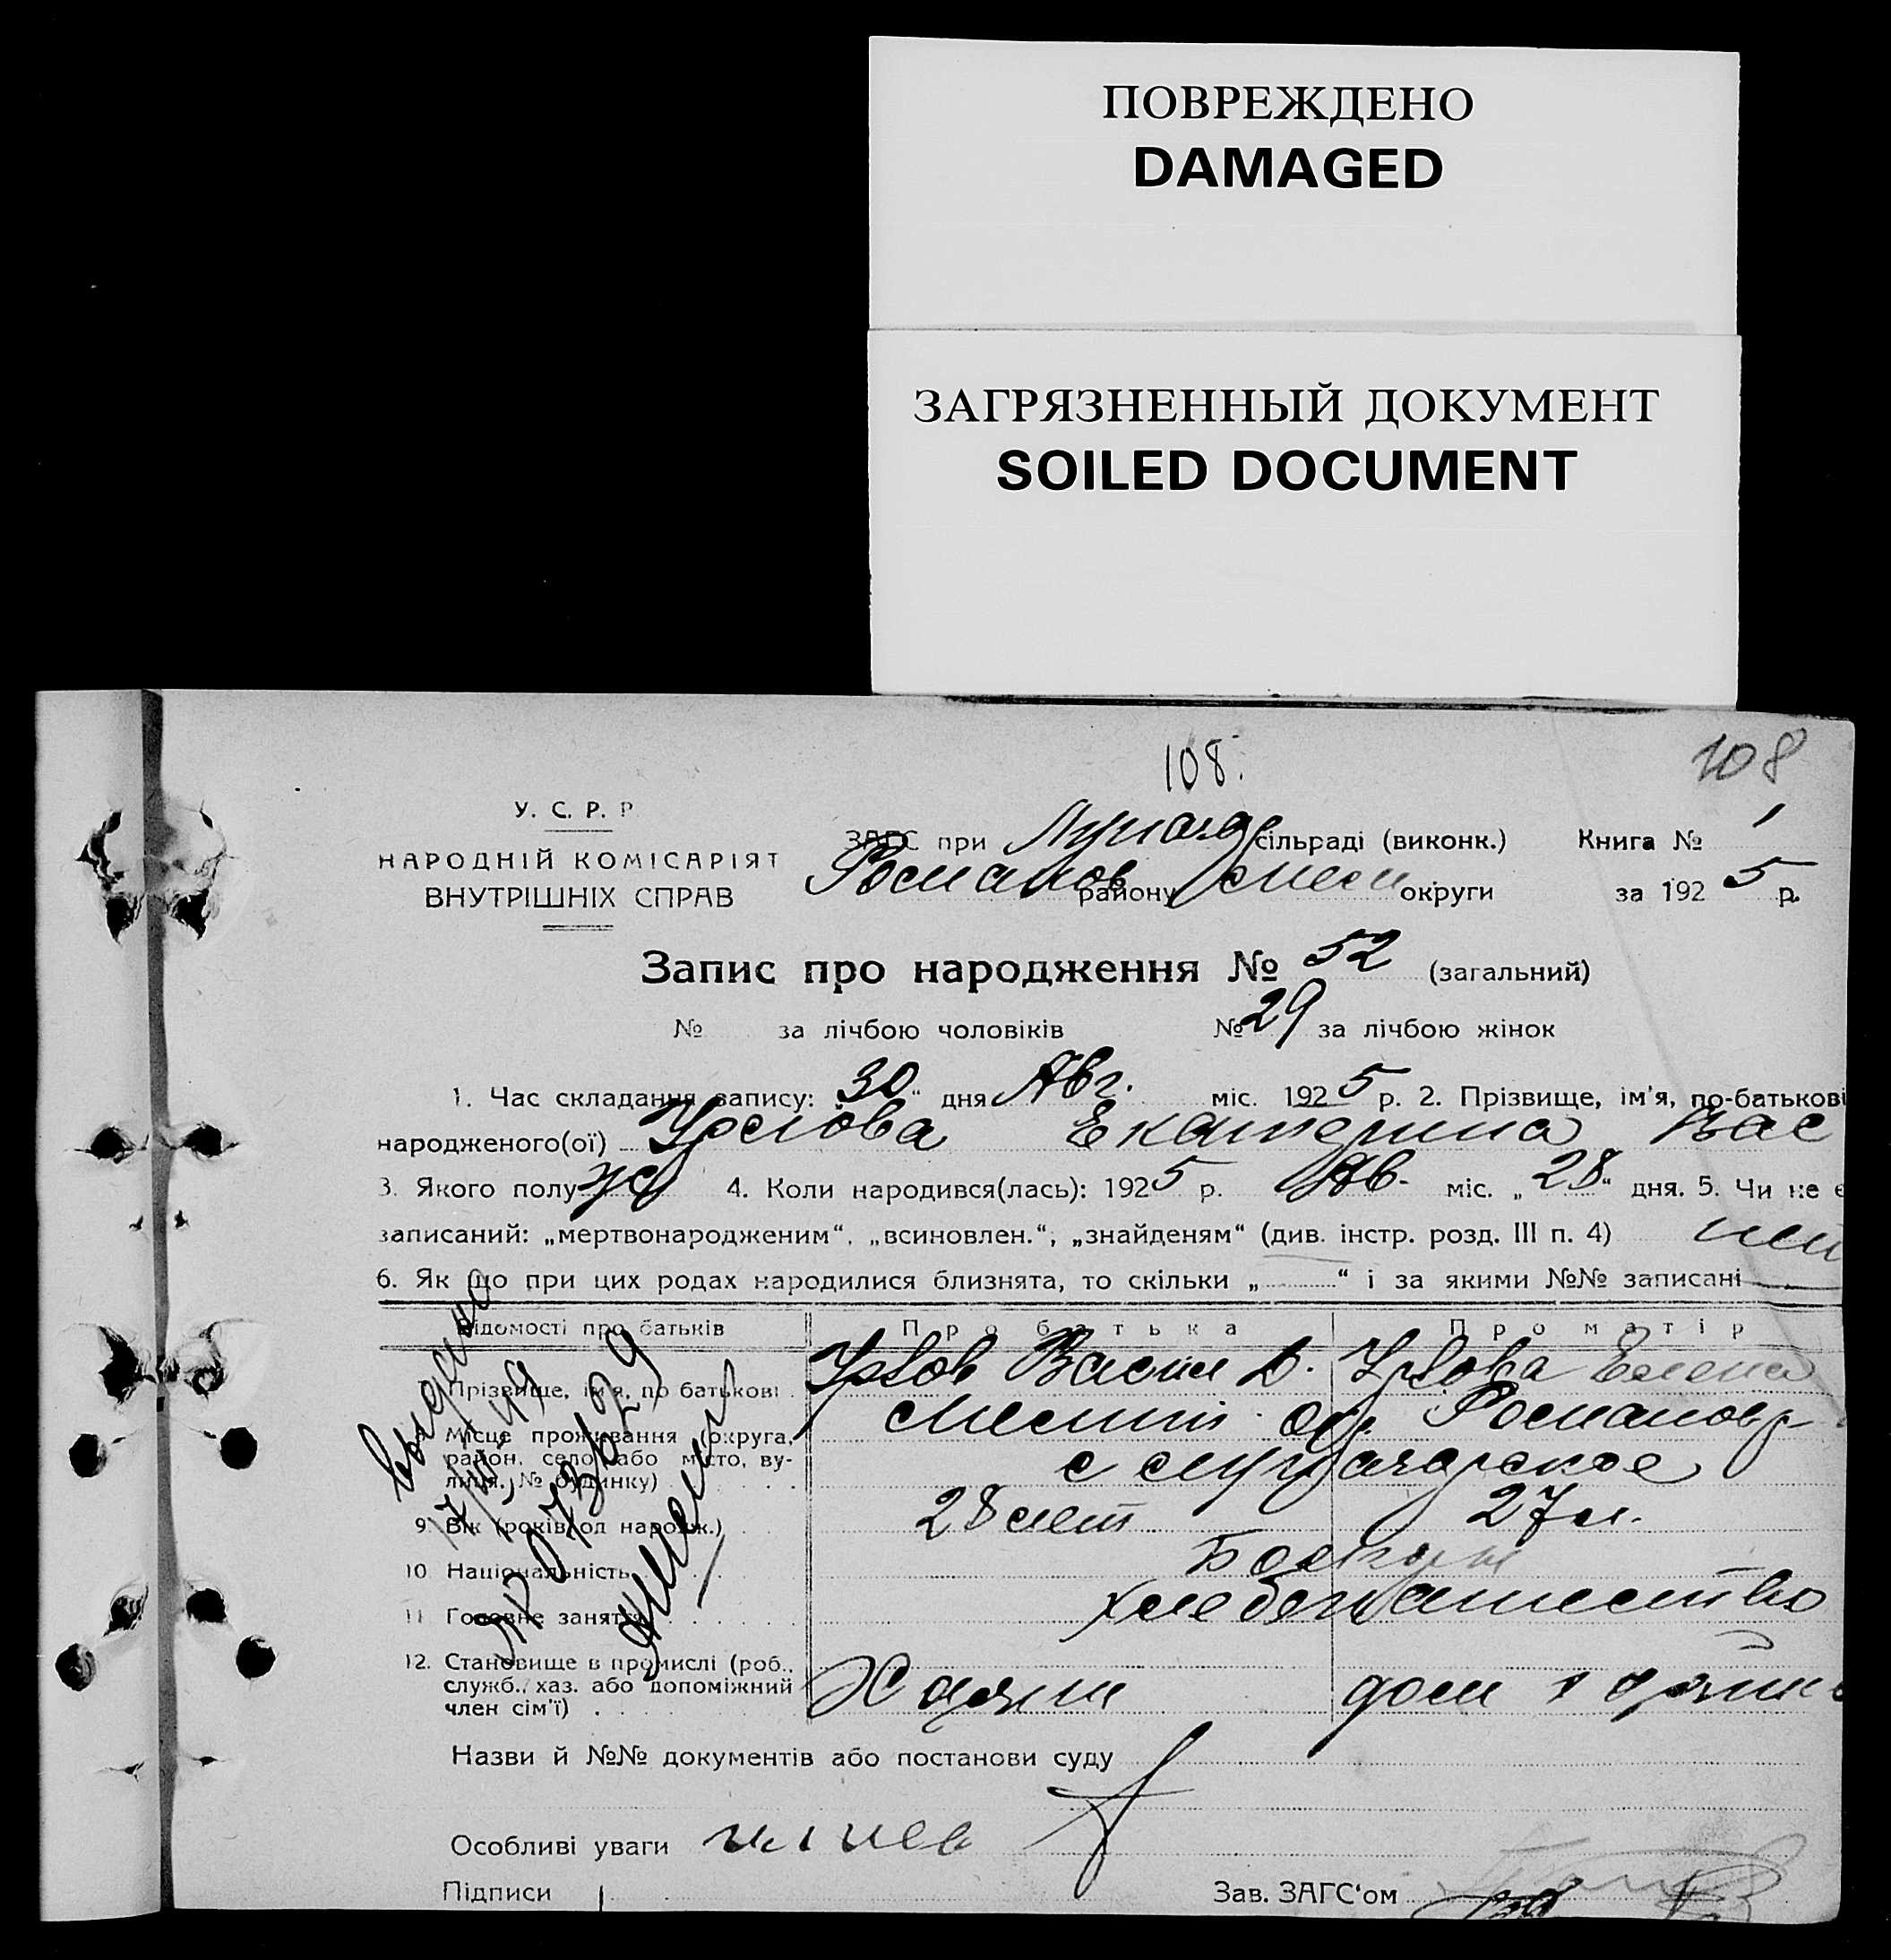 ПОВРЕЖДЕНО
DAMAGED
ЗАГРЯЗНЕННЫЙ ДОКУМЕНТ
SOILED DOCUMENT
108. 108
У. С. Р. Р
НАРОДНІЙ КОМІСАРІЯТ
ВНУТРІШНІХ СПРАВ
ЗАГС при сільраді (виконк.) Книга № 1
Романов району округи за 192 5 р.
Запис про народження № 52 (загальний)
№ за лічбою чоловіків № 29 за лічбою жінок
1. Час складання запису: 30 " дня Авг. міс. 192 5 р. 2. Прізвище, ім'я, по-батькові
народженого(ої) Екатерина Вас
3. Якого полу ж 4. Коли народився(лась): 192 5 р. Ав. міс. „ 28 " дня. 5. Чи не є
записаний: „мертвонародженим“, „всиновлен.“, „знайденям“ (див. інстр. розд. III п. 4) нет
6. Як що при цих родах народилися близнята, то скільки „ “ і за якими №№ записані
Відомості про батьків Про батька Про матір
Прізвище, ім'я, по батькові Васил Д. Елена
Місце проживання (округа, район, село або місто, вулиця, № будинку) Мелит. Романов р
9. Вік (років од народж.) 28 лет 27 л.
10 Національність Болгары
11 Головне заняття хлебопашество
12. Становище в промислі (роб., служб., хаз. або допоміжний член сім'ї) Хозяин дом
Выдано
Назви й №№ документів або постанови суду
Особливі уваги
Підписи Зав. ЗАГС'ом